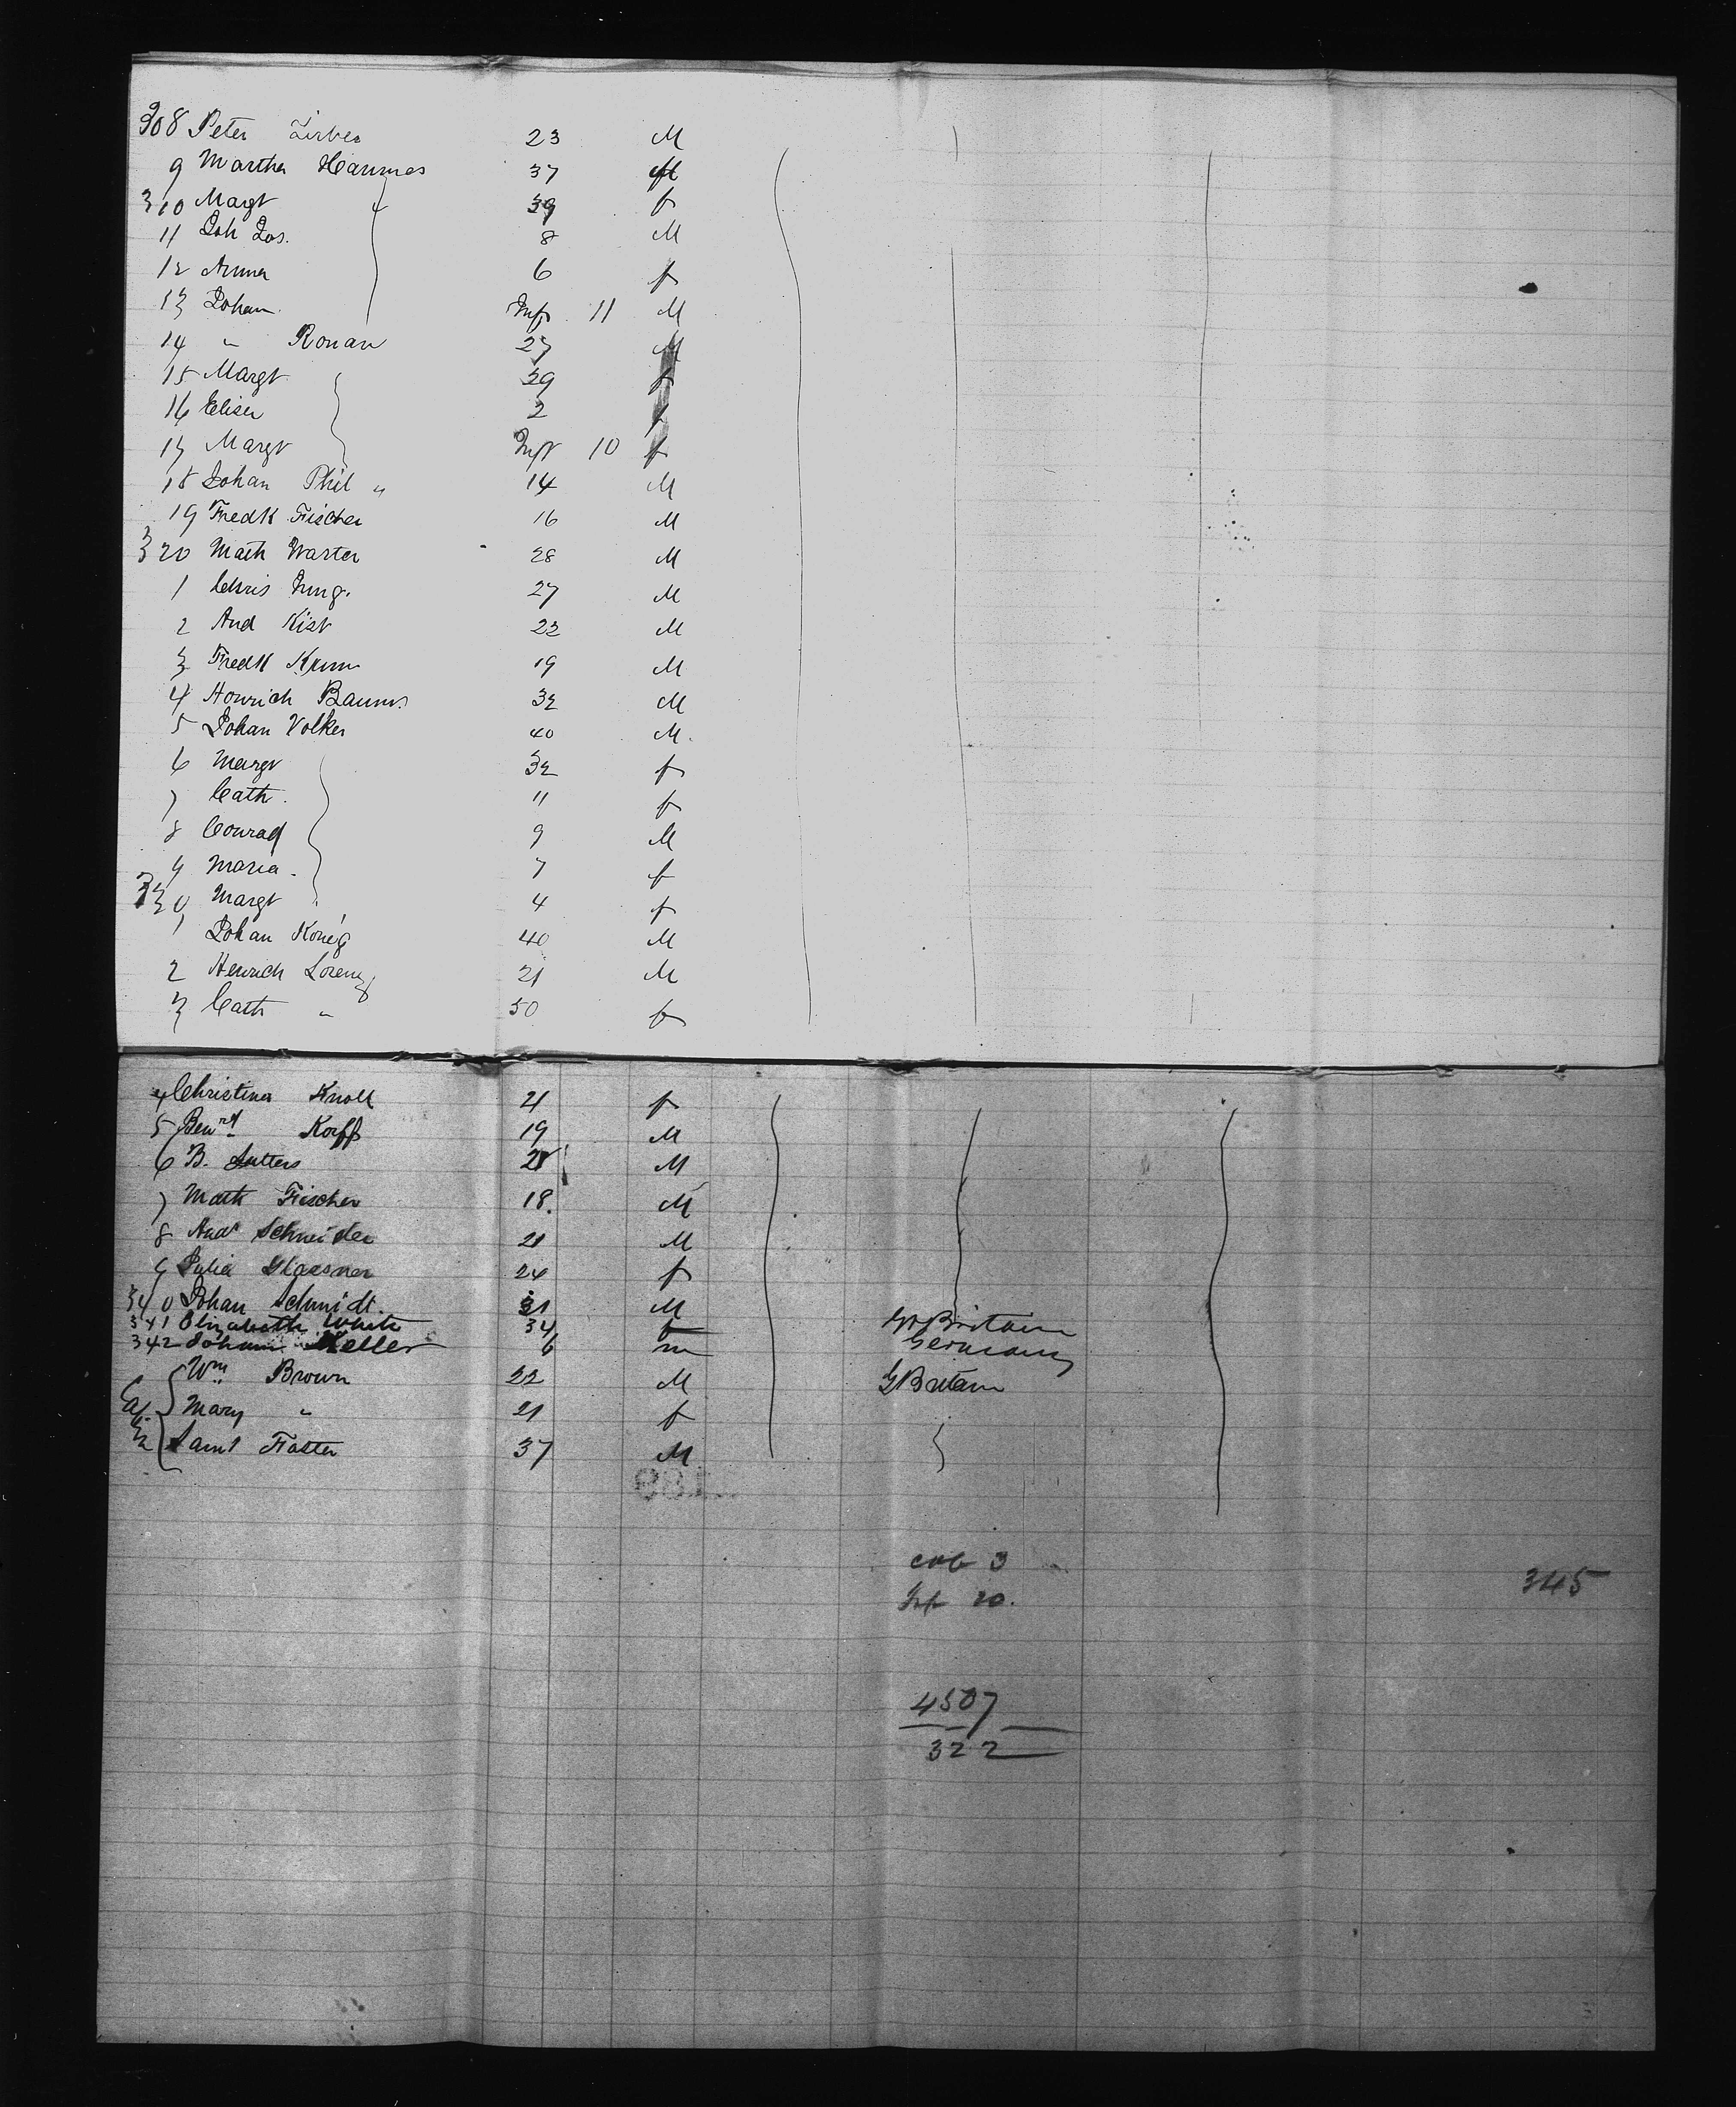 308 Peter Zirbes 23 M
9 Martha Hammes 37 M
310 Margt " 39 f
11 Joh Jos. 8 M
12 Anna 6 f
13 Johan 11 M
14 " Ronan 27 M
15 Margt 29 f
16 Elisa 2 f
17 Margt 10 f
18 Johan Phil " 14 M
19 Fredk Fischer 16 M
320 Math Warter 28 M
1 Chris Jung. 27 M
2 And Kist 22 M
3 Fredk Krum 19 M
4 Henrich Baum 32 M
5 Johan Volker 40 M.
6 Margt 32 f
7 Cath. 11 f
8 Conrad 9 M
9 Maria. 7 f
330 Margt 4 f
1 Johan König 40 M
2 Henrich Lorenz 21 M
3 Cath " 50 f
4 Christina Knoll 21 f
5 Benrd Korff 19 M
6 B. Sutters M
7 Math Fischer 18. M
8 Andr Schneider 21 M
9 Julia Glassner 24 f
340 Johan Schmidt. 31 M
341 Elizabeth White 34 f Gt Britain
342 Johann Keller 6 m Germany
Wm Brown 22 M G Britain
Mary " 21 f
Saml Foster 37 M
cab 3
345
Inf 20.
4507
322